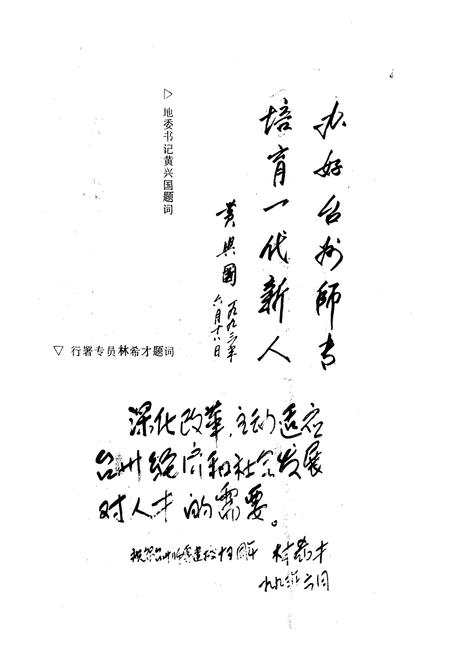 办好台州師专
培育一代新人
黄興國
一九九三年
六月十八日
▷ 地委书记黄兴国题词
▽ 行署专员林希才题词
深化改革,主动适应
台州经济和社会发展
对人才的需要。
祝贺台州师专建校15周年
林希才
一九九三年六月